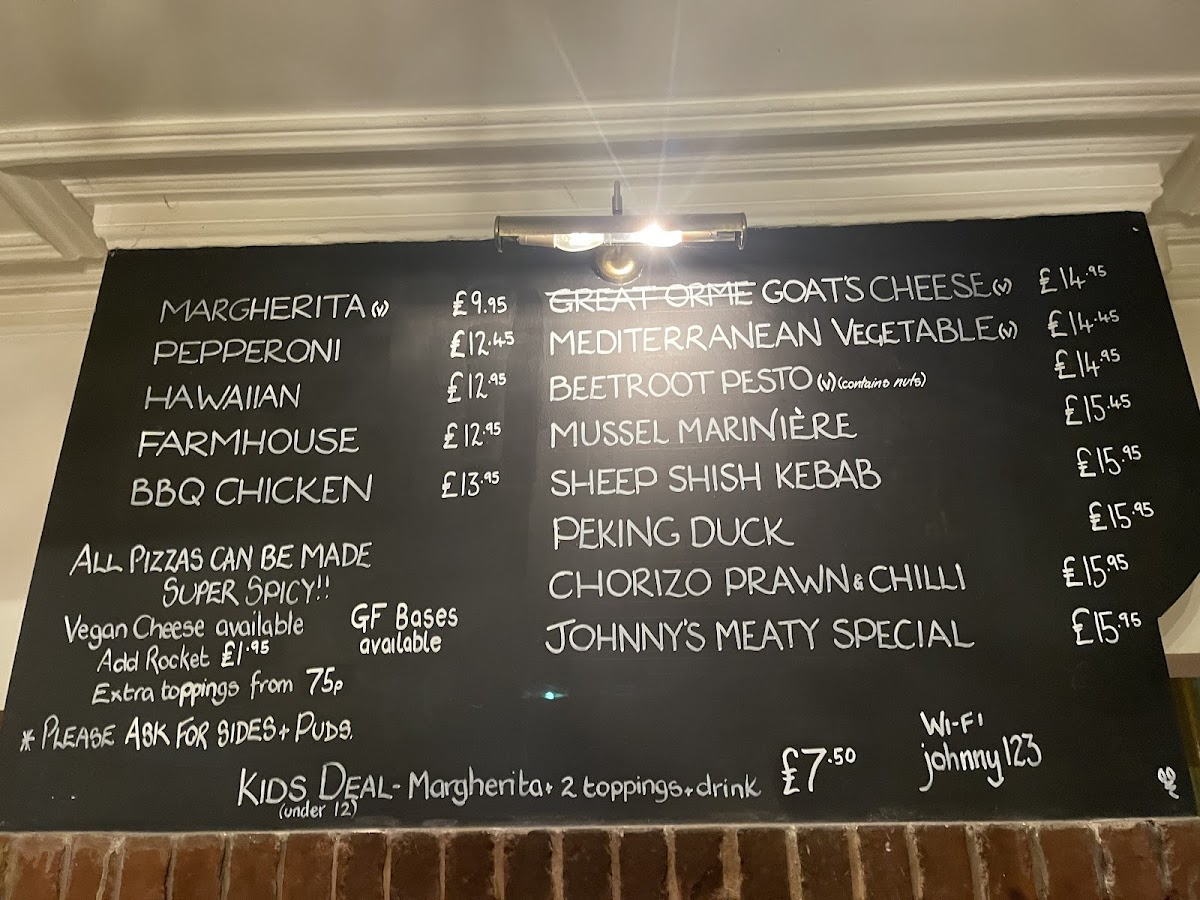 MARGHERITA (v) £9.95
PEPPERONI £12.45
HAWAIIAN £12.95
FARMHOUSE £12.95
BBQ CHICKEN £13.95
ALL PIZZAS CAN BE MADE
SUPER SPICY!!
Vegan Cheese available
Add Rocket £1.95
Extra toppings from 75p
GF Bases
available
* PLEASE ASK FOR SIDES + PUDS.
GREAT ORME GOAT'S CHEESE (v) £14.95
MEDITERRANEAN VEGETABLE (v) £14.45
BEETROOT PESTO (v) (contains nuts) £14.95
MUSSEL MARINIÈRE £15.45
SHEEP SHISH KEBAB £15.95
PEKING DUCK £15.95
CHORIZO PRAWN & CHILLI £15.95
JOHNNY'S MEATY SPECIAL £15.95
KIDS DEAL - Margherita + 2 toppings + drink £7.50
(under 12)
WI-FI
johnny123